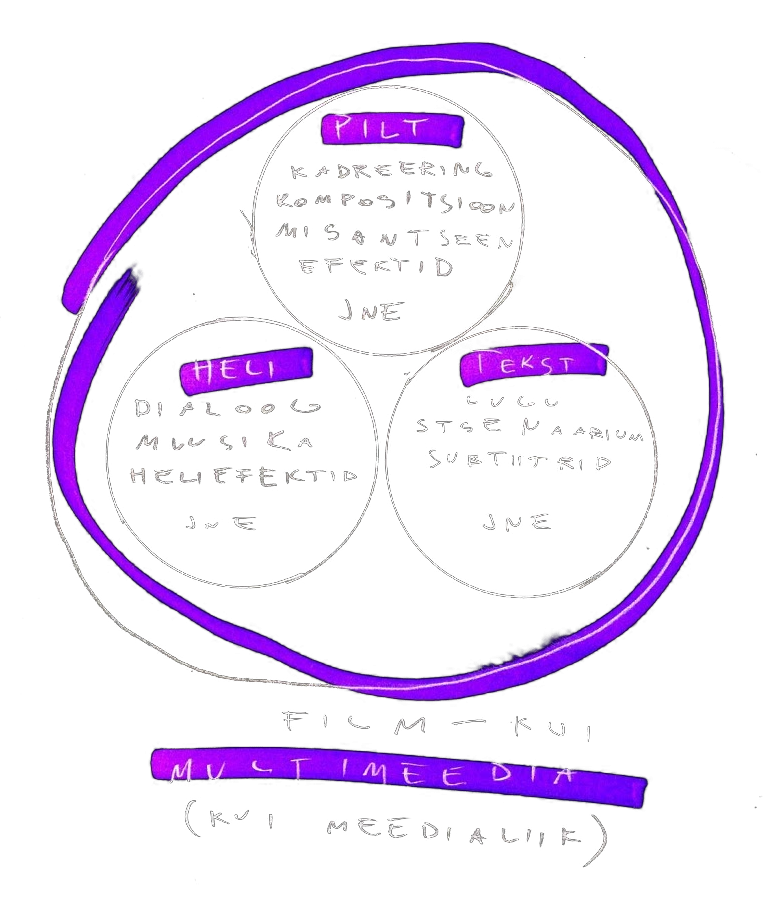 PILT
KADREERING
KOMPOSITSIOON
MISANTSEEN
EFEKTID
JNE
HELI
DIALOOG
MUUSIKA
HELIEFEKTID
JNE
TEKST
LUGU
STSENAARIUM
SUBTIITRID
JNE
FILM – KUI
MULTIMEEDIA
(KUI MEEDIALIIK)